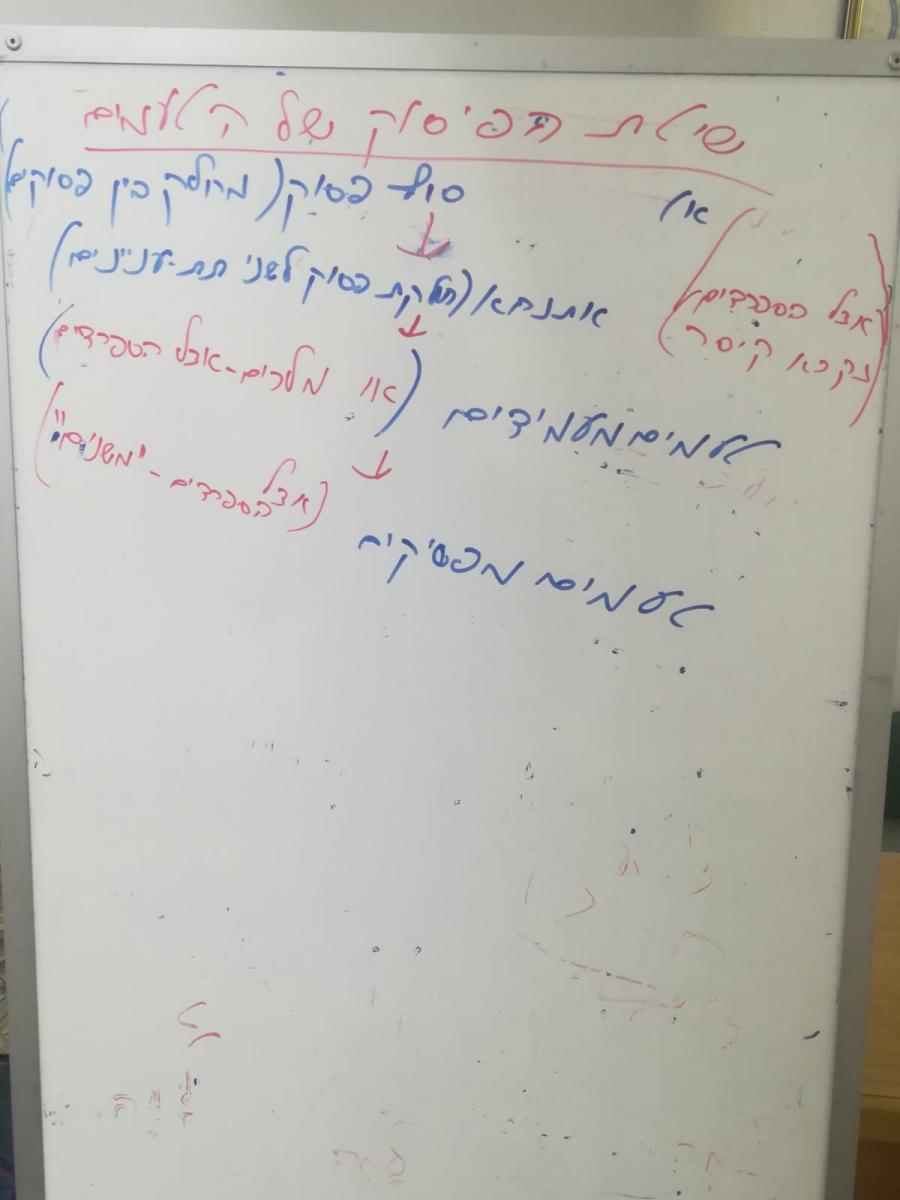 שיטת הפיסוק של הטעמים
סוף פסוק (מחלק בין פסוקים)
(אצל הספרדים
נקרא קיסר)
אתנחתא (חלקת פסוק לשני תת-עניינים)
טעמים מעמידים (או מלכים - אצל הספרדים)
(אצל הספרדים - "משנים")
טעמים מפסיקים